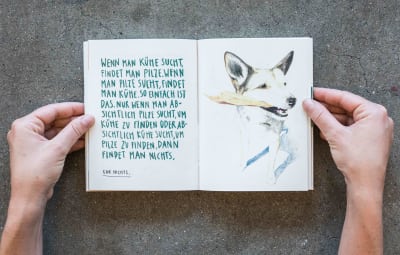 WENN MAN KÜHE SUCHT,
FINDET MAN PILZE. WENN
MAN PILZE SUCHT, FINDET
MAN KÜHE. SO EINFACH IST
DAS. NUR WENN MAN AB-
SICHTLICH PILZE SUCHT, UM
KÜHE ZU FINDEN ODER AB-
SICHTLICH KÜHE SUCHT, UM
PILZE ZU FINDEN, DANN
FINDET MAN NICHTS.
GAR NICHTS.